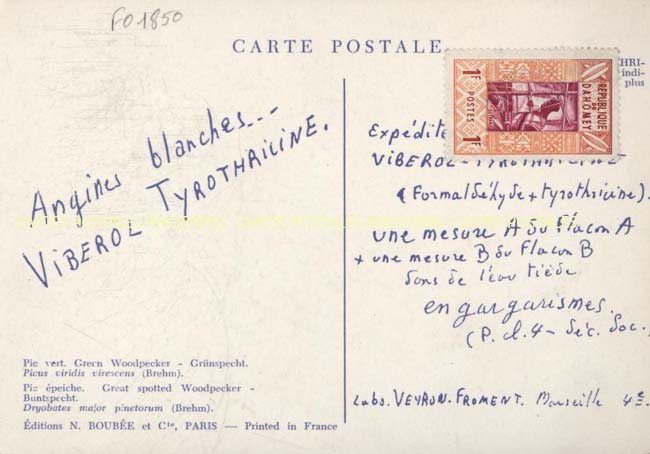 FO1850
CARTE POSTALE
HRI-
indi-
plus
1F
POSTES
1F
RÉPUBLIQUE
DU
DAHOMEY
Angines blanches...
VIBEROL TYROTHRICINE.
Expédite
VIBEROL-TYROTHRICINE
(Formaldéhyde + tyrothricine).
une mesure A du flacon A
+ une mesure B du Flacon B
dans de l'eau tiède
en gargarismes.
(P. cl. 4 - Séc. Soc.)
Labo. VEYRON-FROMENT. Marseille 4e.
Pic vert. Green Woodpecker - Grünspecht.
Picus viridis virescens (Brehm).
Pic épeiche. Great spotted Woodpecker -
Buntspecht.
Dryobates major pinetorum (Brehm).
Éditions N. BOUBÉE et Cie, PARIS — Printed in France